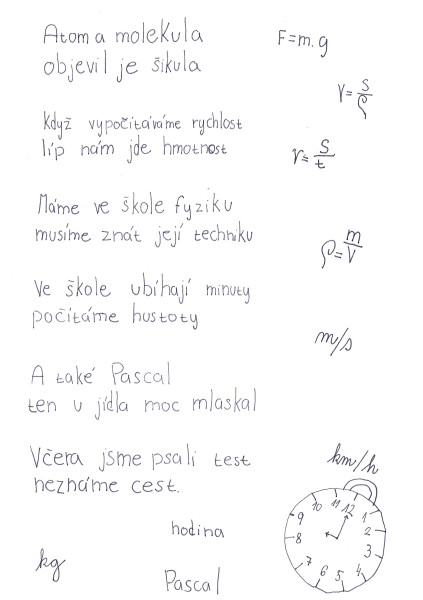 Atom a molekula
objevil je šikula
F=m.g
V=S/ρ
Když vypočítáváme rychlost
líp nám jde hmotnost
v=S/t
Máme ve škole fyziku
musíme znát její techniku
ρ=m/V
Ve škole ubíhají minuty
počítáme hustoty
m/s
A také Pascal
ten u jídla moc mlaskal
Včera jsme psali test
neznáme cest.
km/h
10 11 12 1
9 2
8 3
7 6 5 4
hodina
kg
Pascal